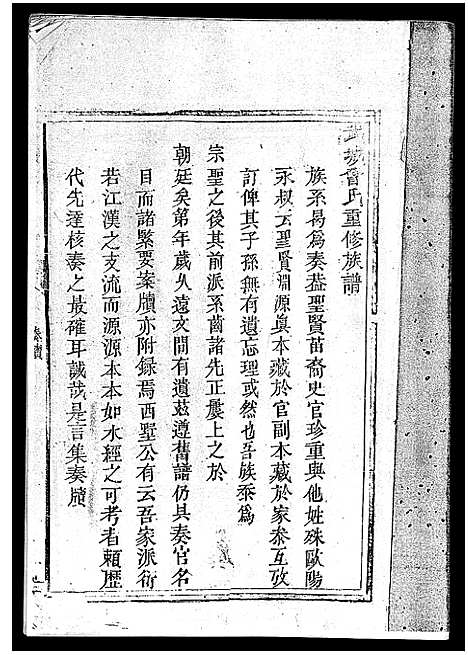 武城曾氏重修族譜
族系曷為奏葢聖賢苗裔史官珍重與他姓殊歐陽
永叔云聖賢淵源眞本藏於官副本藏於家叅互攷
訂俾其子孫無有遺忘理或然也吾族忝為
宗聖之後其前派系啚諸先正屢上之於
朝廷矣第年歲久遠文間有遺茲遵舊譜仍具奏官名
目而諸緊要案牘亦附錄焉西墅公有云吾家派衍
若江漢之支流而源源本本如水經之可考者賴歷
代先達核奏之最確耳誠哉是言集奏牘
奏牘